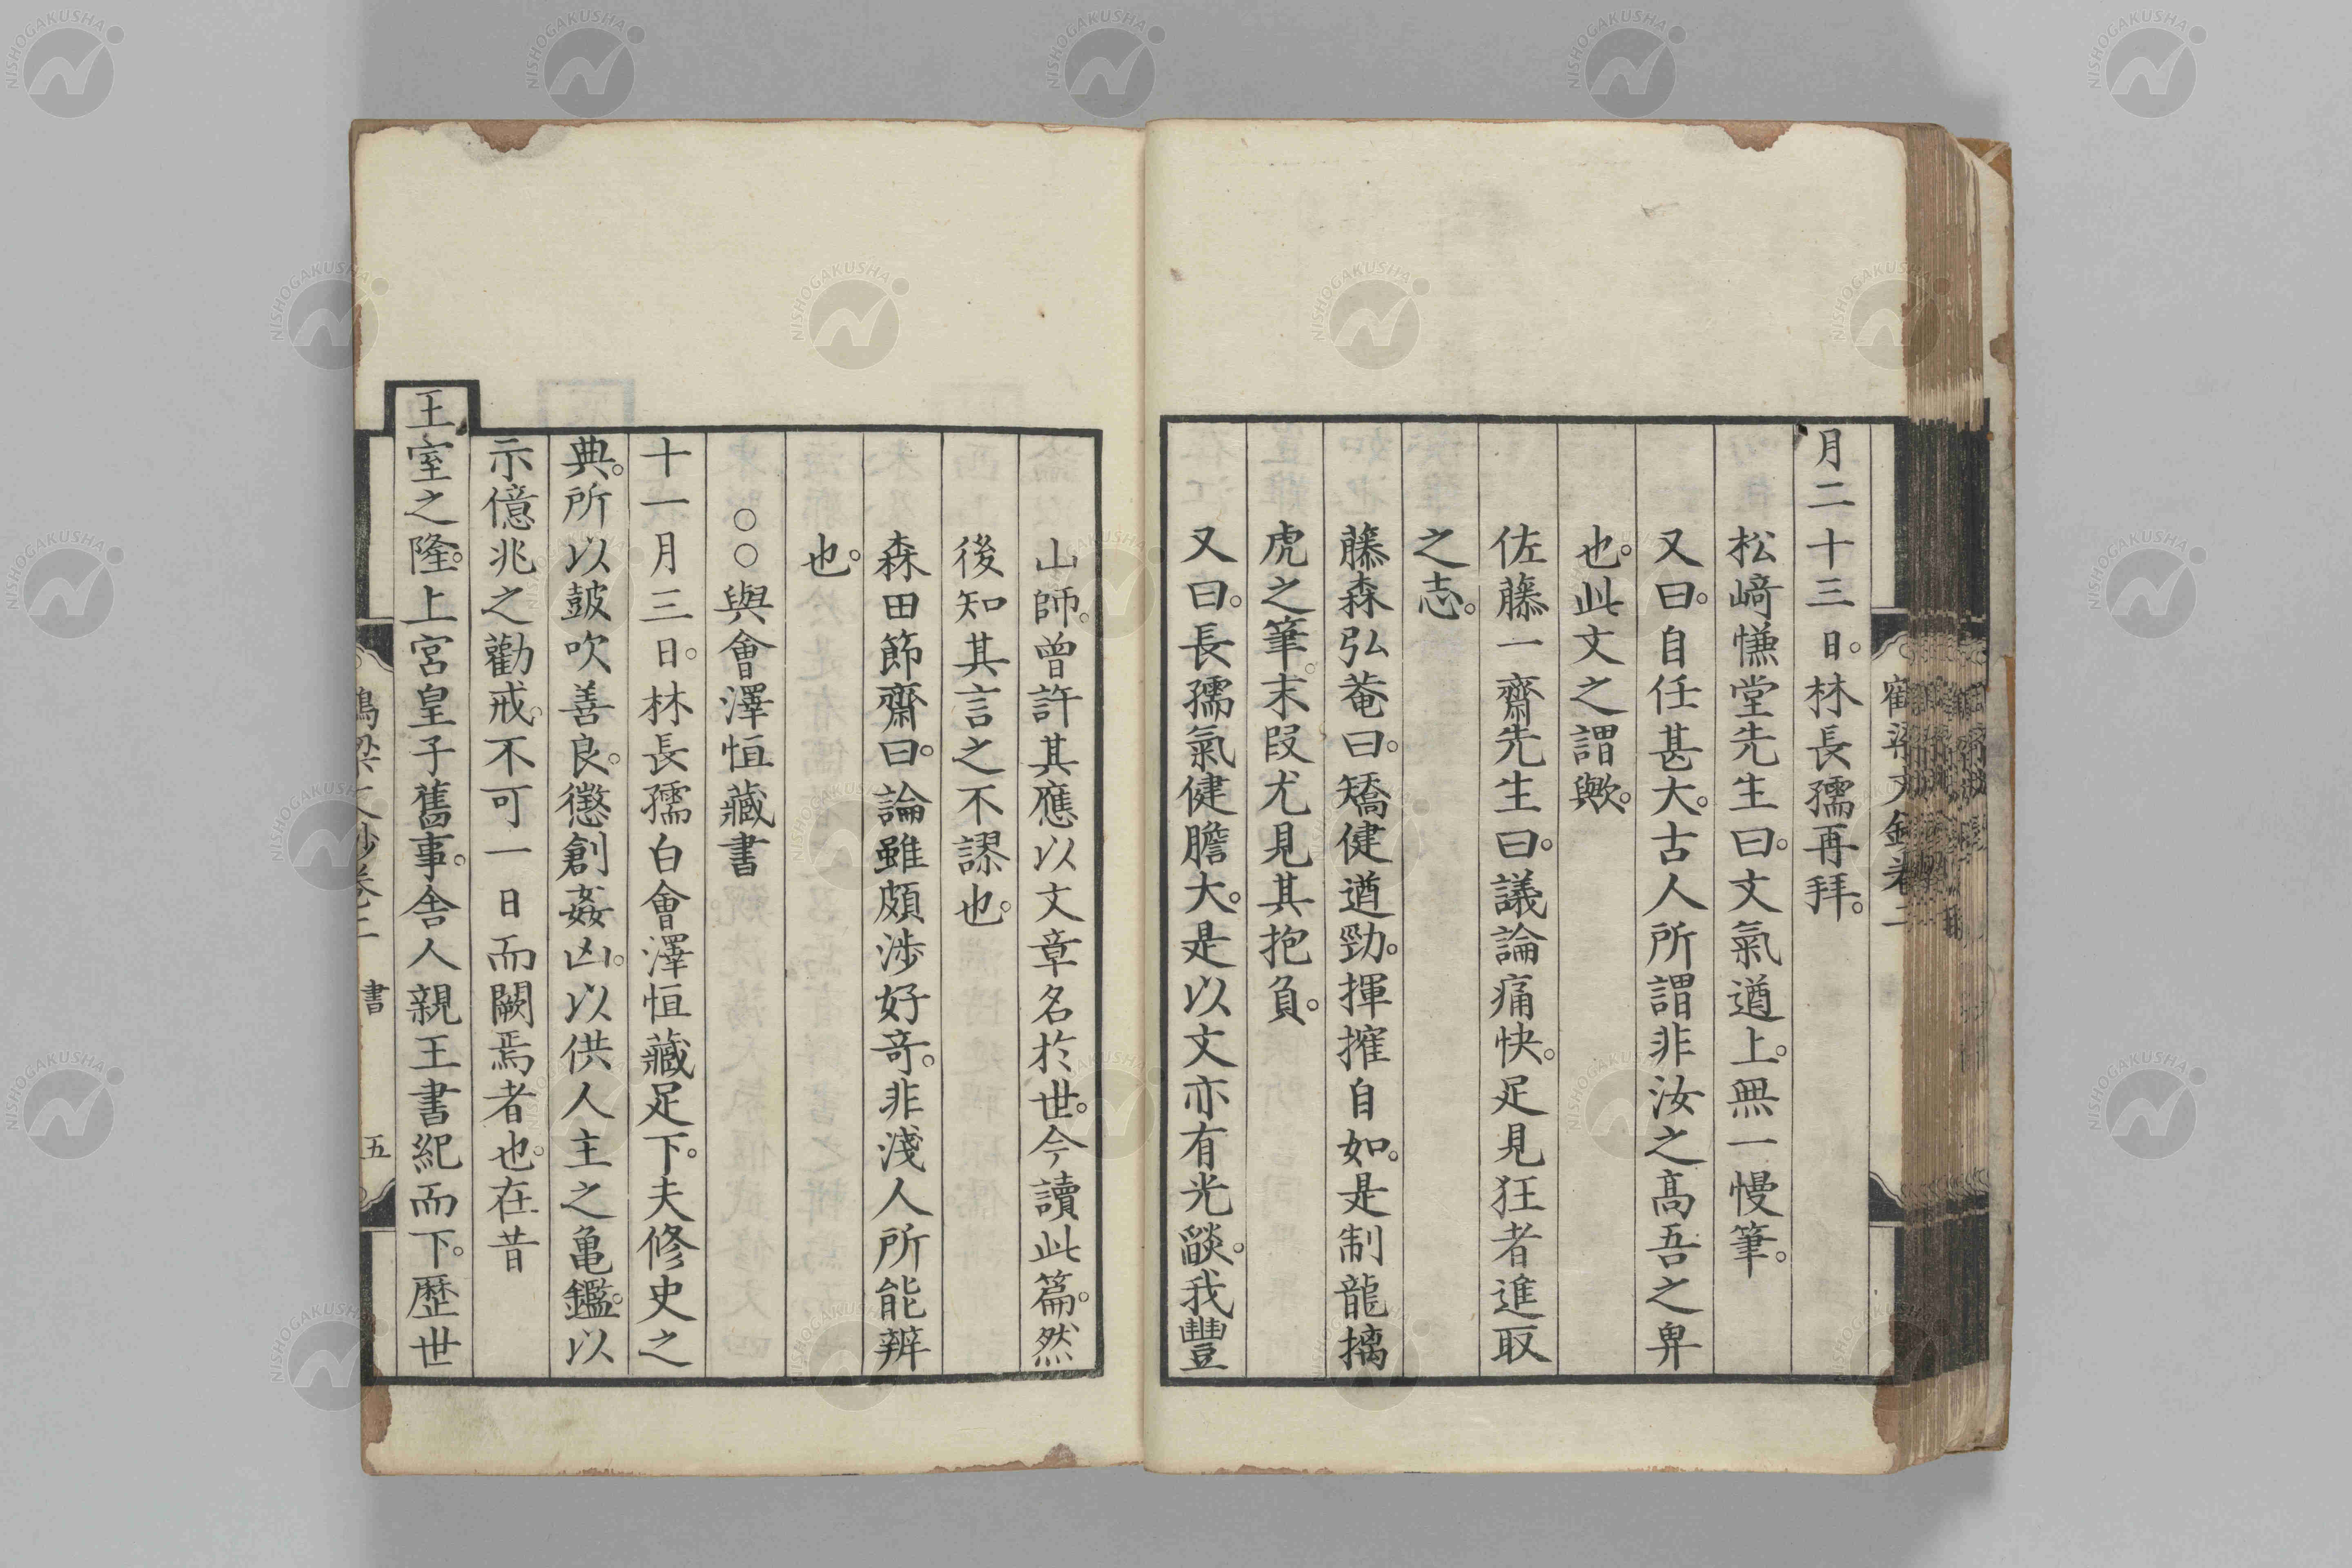 月二十三日。林長孺再拜。
松﨑慊堂先生曰。文氣遒上。無一慢筆。
又曰。自任甚大。古人所謂非汝之髙吾之卑
也。此文之謂歟。
佐藤一齋先生曰。議論痛快。足見狂者進取
之志。
藤森弘菴曰。矯健遒勁。揮搉自如。是制龍擒
虎之筆。末段尤見其抱負。
又曰。長孺氣健膽大。是以文亦有光燄。我豐
山師。曾許其應以文章名於世。今讀此篇。然
後知其言之不謬也。
森田節齋曰。論雖頗涉好奇。非淺人所能辨
也。
○○與會澤恒藏書
十一月三日。林長孺白會澤恒藏足下。夫修史之
典。所以鼓吹善良。懲創姦凶。以供人主之亀鑑。以
示億兆之勸戒。不可一日而闕焉者也。在昔
王室之隆。上宮皇子舊事。舍人親王書紀而下。歷世
鶴梁文鈔卷二 書 五
NISHOGAKUSHA